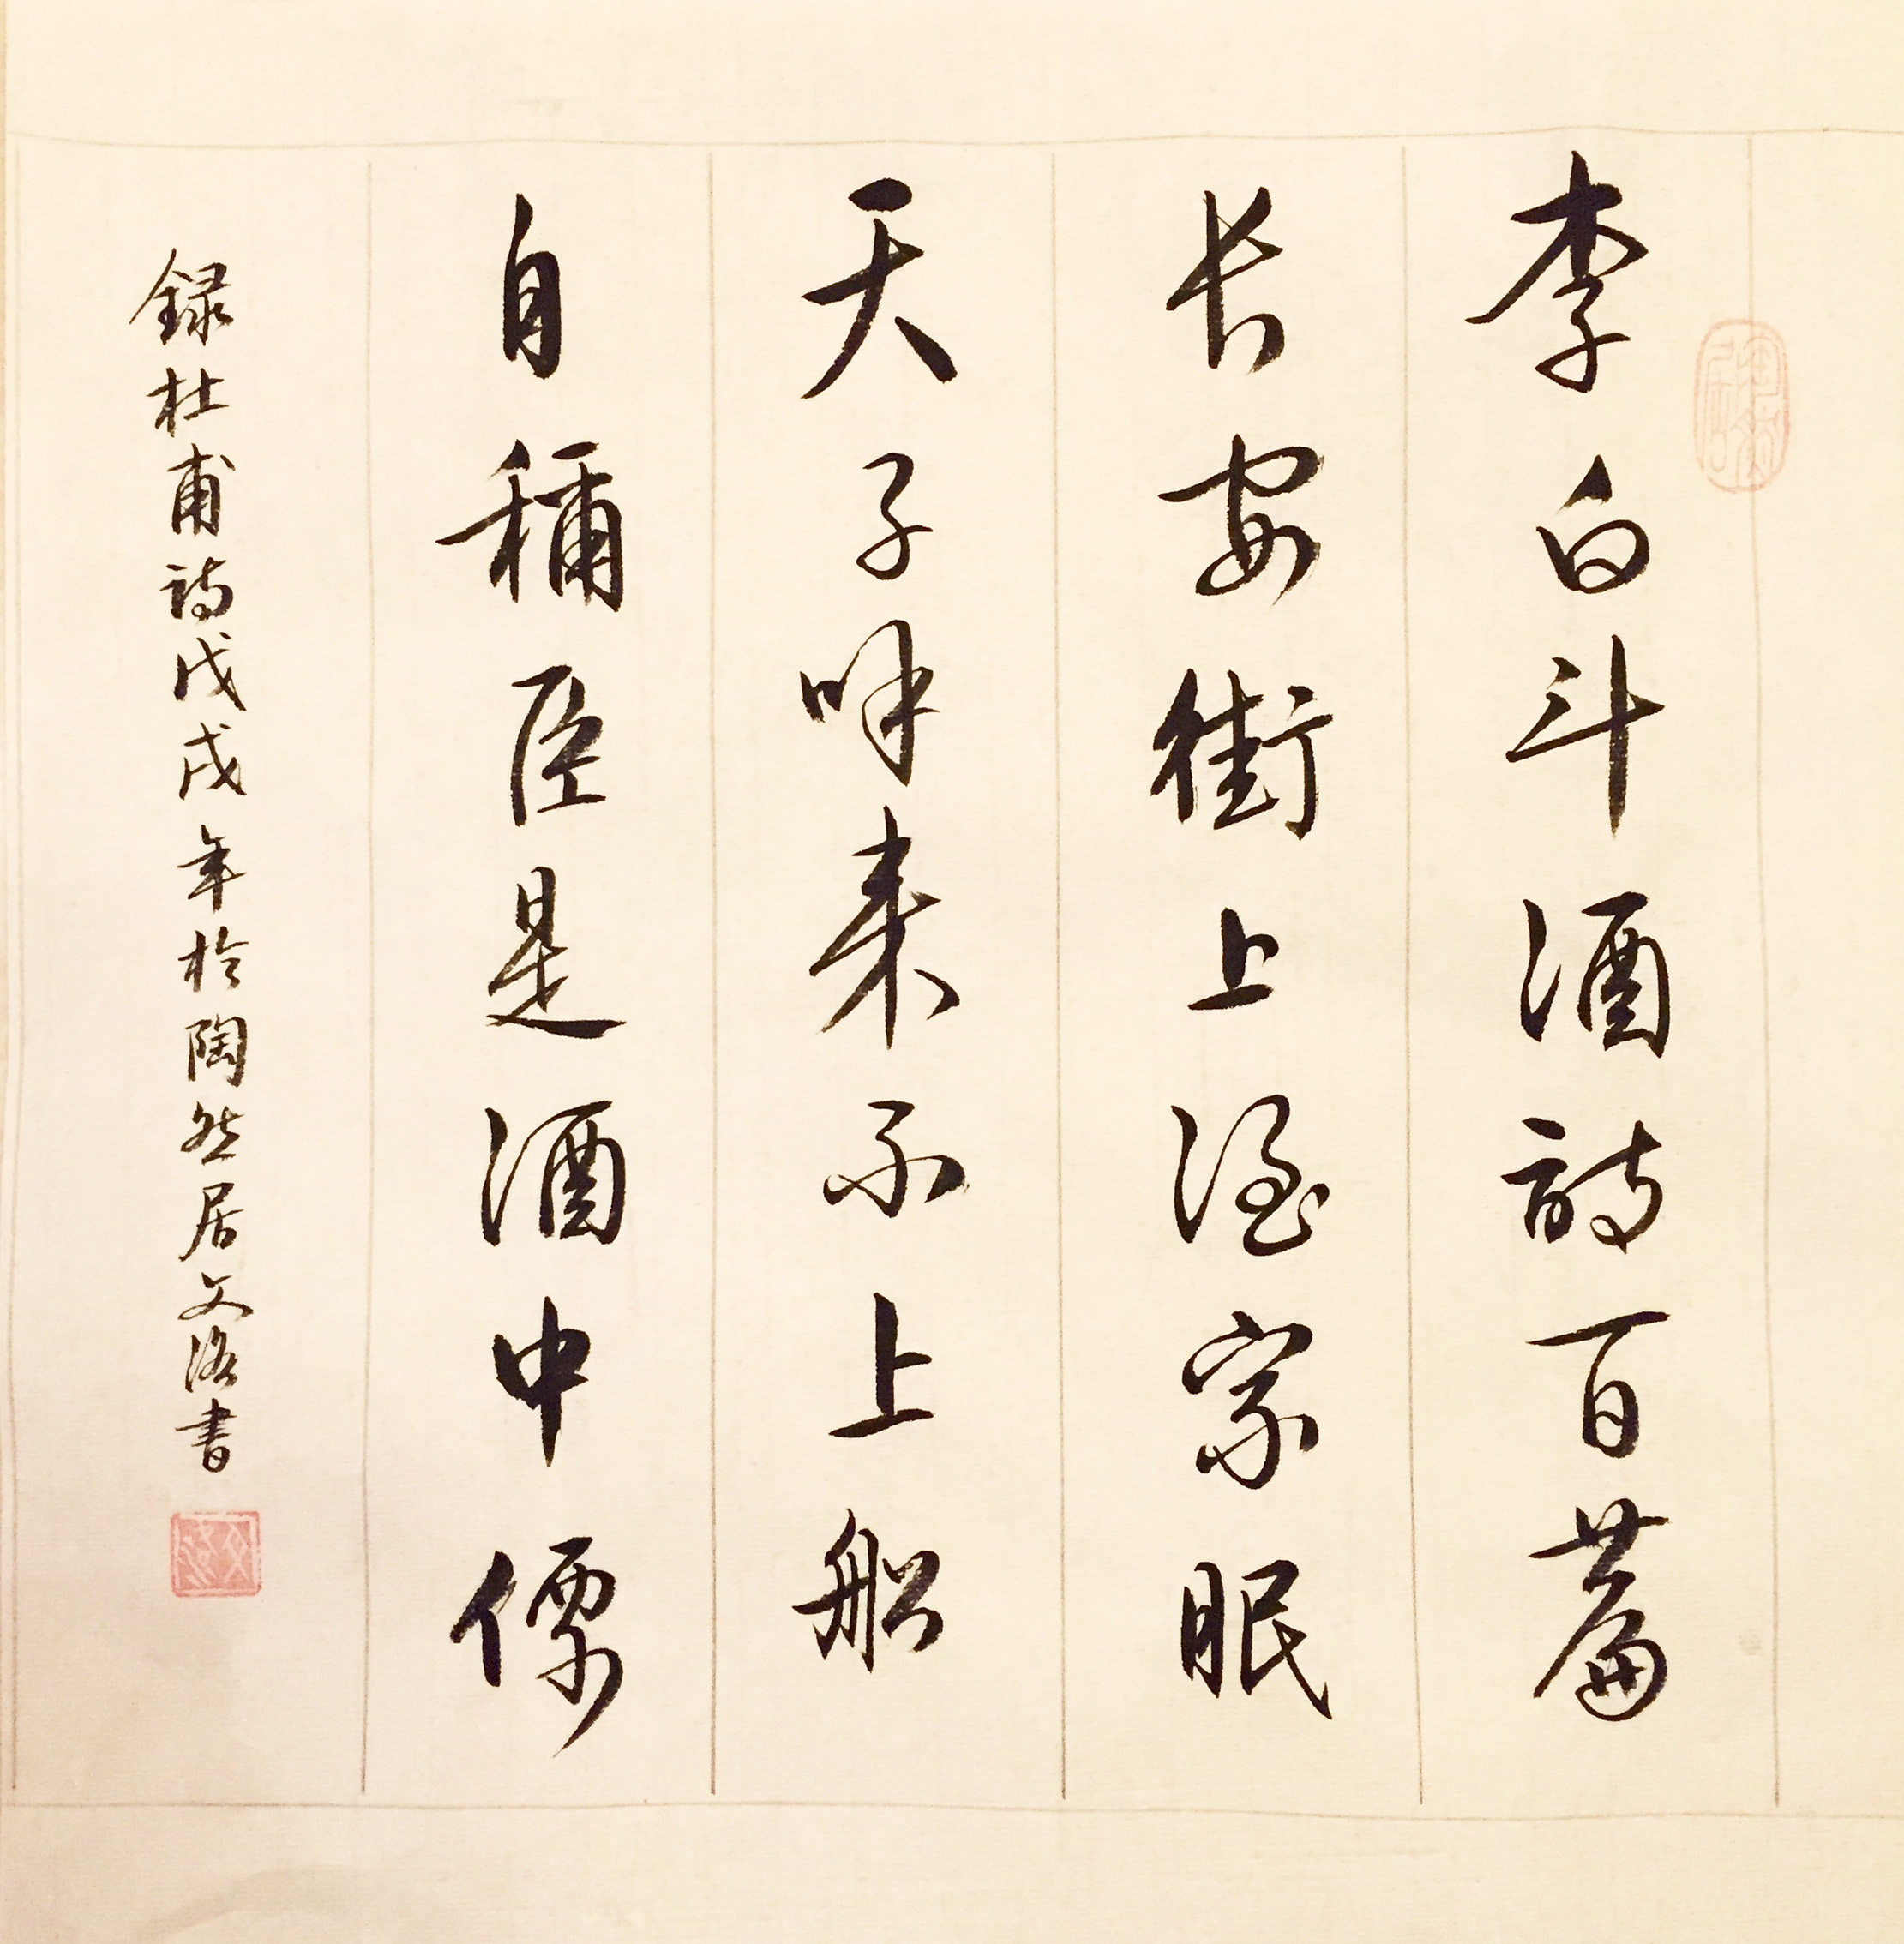 李白斗酒詩百篇
长安街上酒家眠
天子呼来不上船
自稱臣是酒中僊
録杜甫詩戊戌年於陶然居文洛書